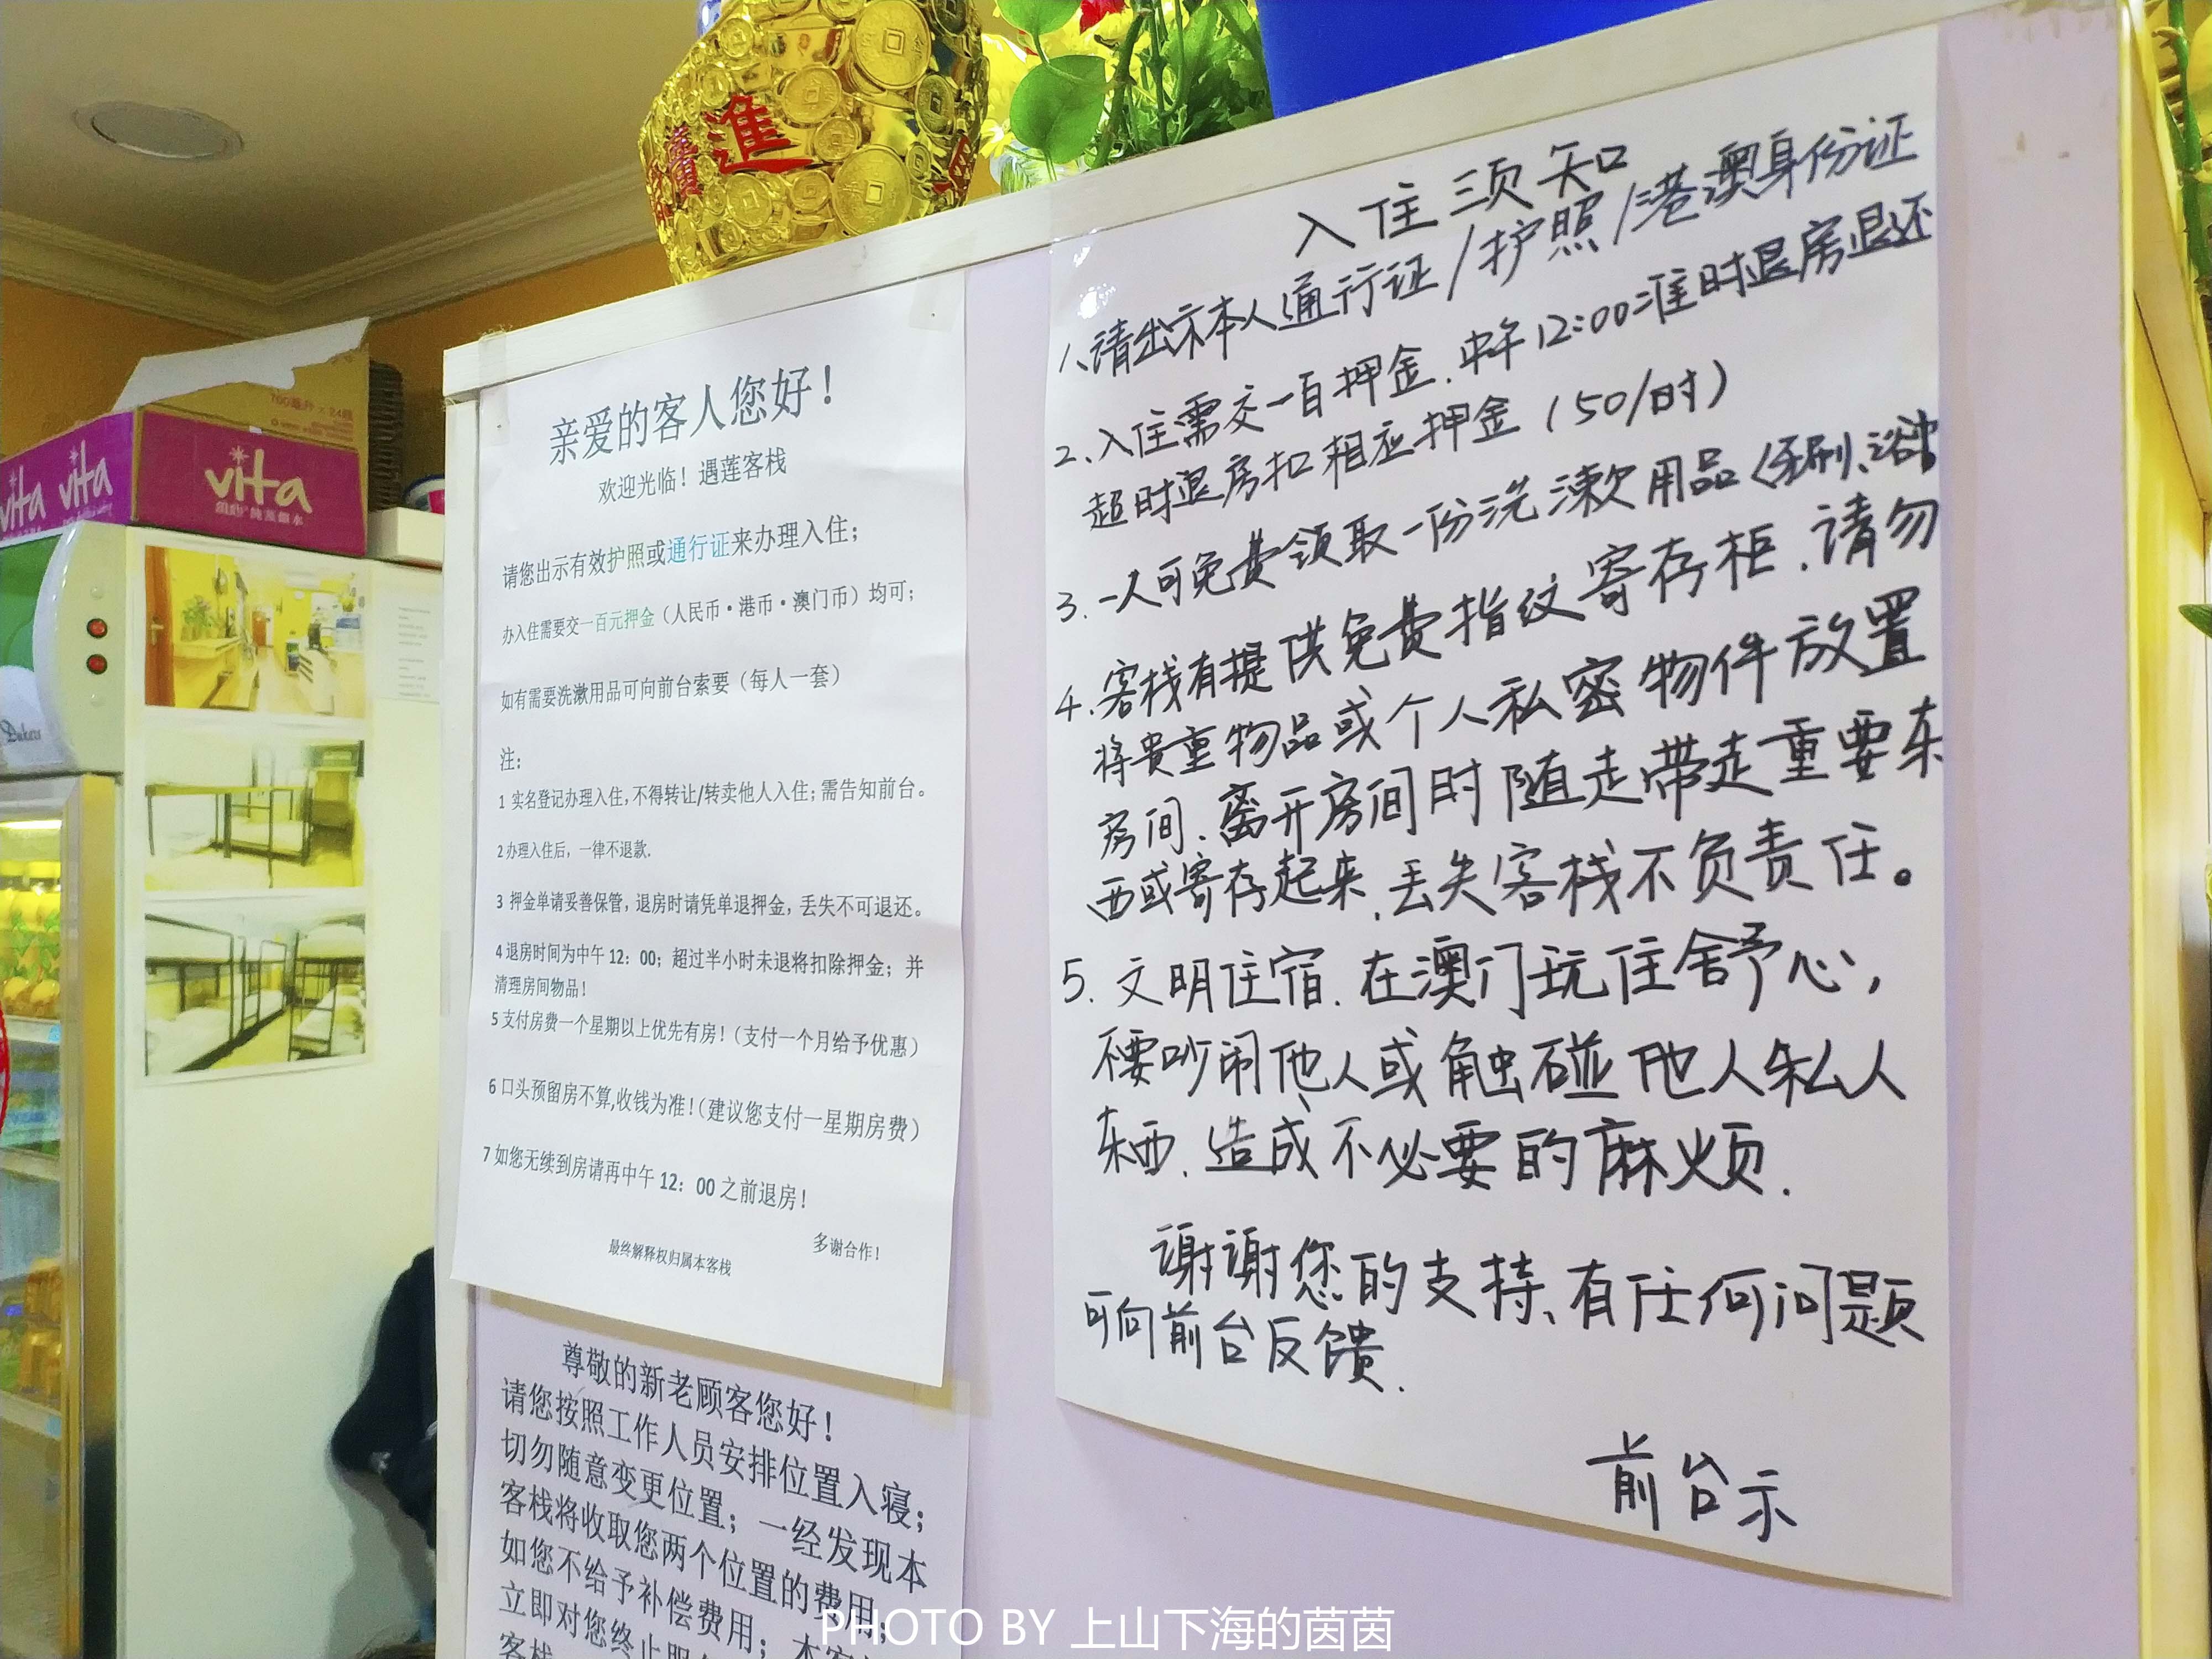 進
vita
vita
vita
700毫升 x 24瓶
Dukers
亲爱的客人您好！
欢迎光临！遇莲客栈
请您出示有效护照或通行证来办理入住；
办入住需要交一百元押金（人民币·港币·澳门币）均可；
如有需要洗漱用品可向前台索要（每人一套）
注：
1 实名登记办理入住,不得转让/转卖他人入住；需告知前台。
2 办理入住后，一律不退款.
3 押金单请妥善保管，退房时请凭单退押金，丢失不可退还。
4 退房时间为中午 12：00；超过半小时未退将扣除押金；并
清理房间物品！
5 支付房费一个星期以上优先有房！（支付一个月给予优惠）
6 口头预留房不算,收钱为准！（建议您支付一星期房费）
7 如您无续到房请再中午 12：00 之前退房！
多谢合作！
最终解释权归属本客栈
尊敬的新老顾客您好！
请您按照工作人员安排位置入寝；
切勿随意变更位置；一经发现本
客栈将收取您两个位置的费用；
如您不给予补偿费用；本客
立即对您终止服
客栈
入住须知
1、请出示本人通行证/护照/港澳身份证
2、入住需交一百押金.中午12:00准时退房退还
超时退房扣相应押金（50/时）
3.一人可免费领取一份洗漱用品（牙刷、浴
4.客栈有提供免费指纹寄存柜.请勿
将贵重物品或个人私密物件放置
房间.离开房间时随走带走重要东
西或寄存起来.丢失客栈不负责任。
5.文明住宿.在澳门玩住舍予心，
不要吵闹他人或触碰他人私人
东西.造成不必要的麻烦.
谢谢您的支持、有任何问题
可向前台反馈.
前台示
PHOTO BY 上山下海的茵茵